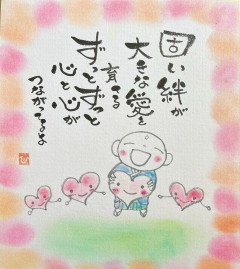 固い絆が
大きな愛を
育てる
ずっとずっと
心と心が
つながってるよ